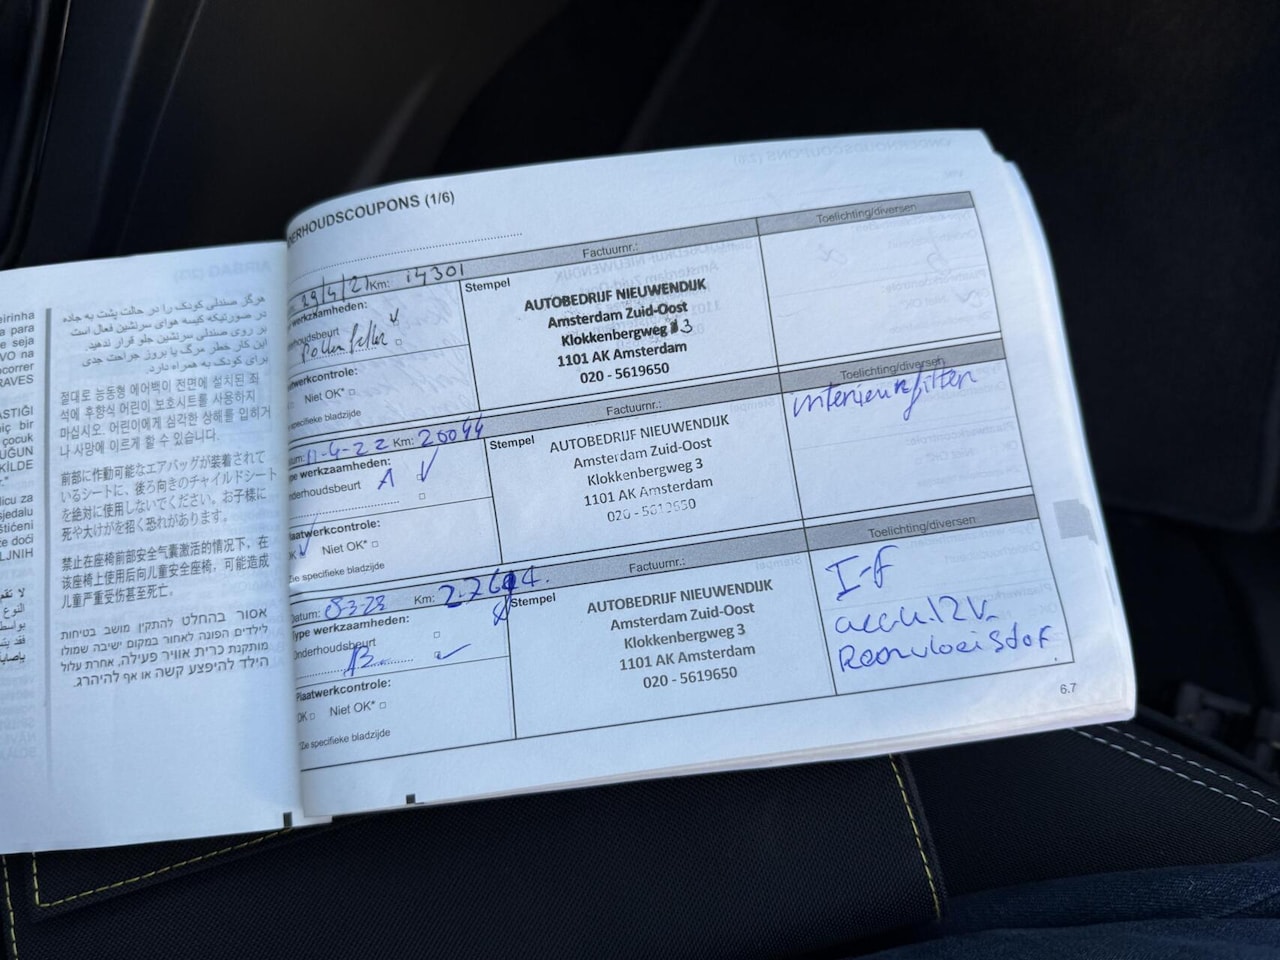 eirinha
a para
e seja
VO na
ocorrer
RAVES
ASTIĞI
eiç bir
çocuk
UĞUN
KİLDE
licu za
sjedalu
štićeni
e doći
LJNIH
هرگز صندلی کودک را در حالت پشت به جاده
در صورتیکه کیسه هوای سرنشین فعال است
بر روی صندلی سرنشین جلو قرار ندهید.
این کار خطر مرگ یا بروز جراحت جدی
برای کودک به همراه دارد.
절대로 능동형 에어백이 전면에 설치된 좌
석에 후향식 어린이 보호시트를 사용하지
마십시오. 어린이에게 심각한 상해를 입히거
나 사망에 이르게 할 수 있습니다.
前部に作動可能なエアバッグが装着されて
いるシートに、後ろ向きのチャイルドシート
を絶対に使用しないでください。お子様に
死や大けがを招く恐れがあります。
禁止在座椅前部安全气囊激活的情况下，在
该座椅上使用后向儿童安全座椅，可能造成
儿童严重受伤甚至死亡。
אסור בהחלט להתקין מושב בטיחות
לילדים הפונה לאחור במקום ישיבה שמולו
מותקנת כרית אוויר פעילה, אחרת עלול
הילד להיפצע קשה או אף להיהרג.
ERHOUDSCOUPONS (1/6)
29/4/21 Km: 14301 Factuurnr.: Toelichting/diversen
werkzaamheden:
derhoudsbeurt
Pollenfilter
aatwerkcontrole:
Niet OK*
specifieke bladzijde
Stempel
AUTOBEDRIJF NIEUWENDIJK
Amsterdam Zuid-Oost
Klokkenbergweg 3
1101 AK Amsterdam
020 - 5619650
tum: 11-4-22 Km: 26044 Factuurnr.: Toelichting/diversen
ype werkzaamheden:
nderhoudsbeurt A
laatwerkcontrole:
OK Niet OK*
Zie specifieke bladzijde
Stempel
AUTOBEDRIJF NIEUWENDIJK
Amsterdam Zuid-Oost
Klokkenbergweg 3
1101 AK Amsterdam
020 - 5619650
interieurfilter
Datum: 8-3-23 Km: Factuurnr.: Toelichting/diversen
Type werkzaamheden:
Onderhoudsbeurt
B
Plaatwerkcontrole:
OK Niet OK*
*Zie specifieke bladzijde
Stempel
AUTOBEDRIJF NIEUWENDIJK
Amsterdam Zuid-Oost
Klokkenbergweg 3
1101 AK Amsterdam
020 - 5619650
I-f
accu.12v.
Remvloeistof.
6.7